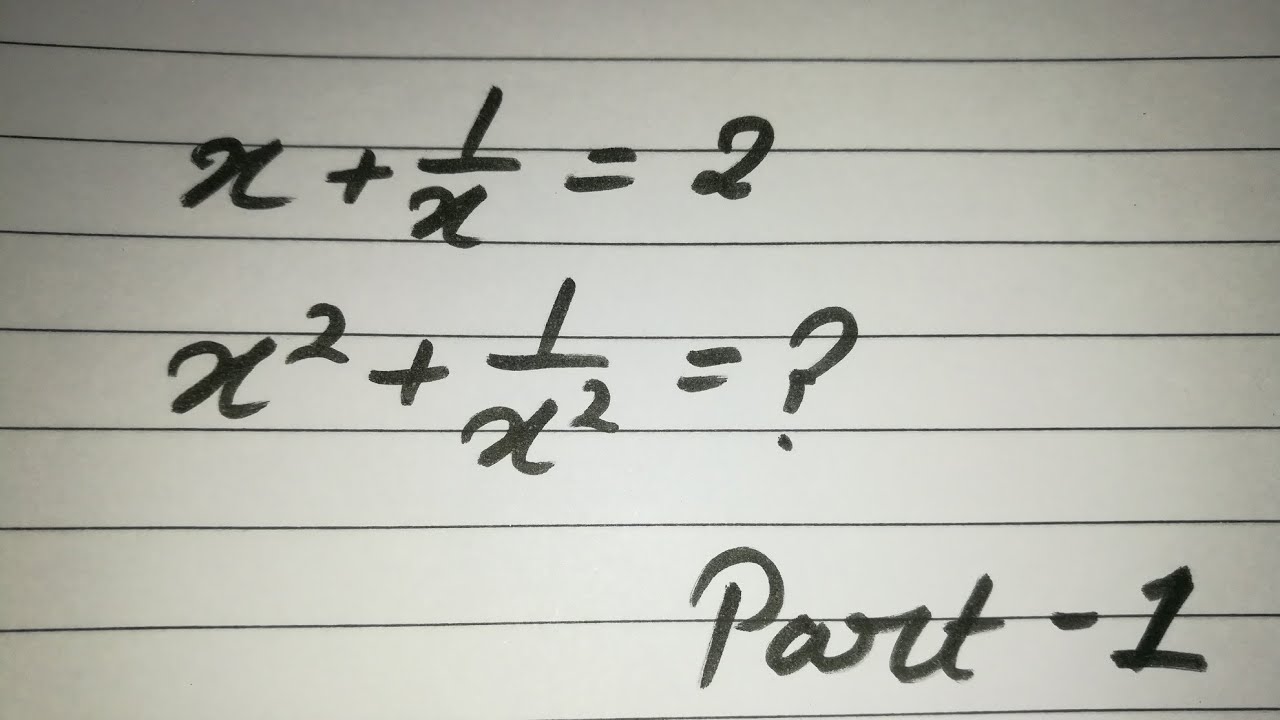 x + 1/x = 2
x² + 1/x² = ?
Part - 1